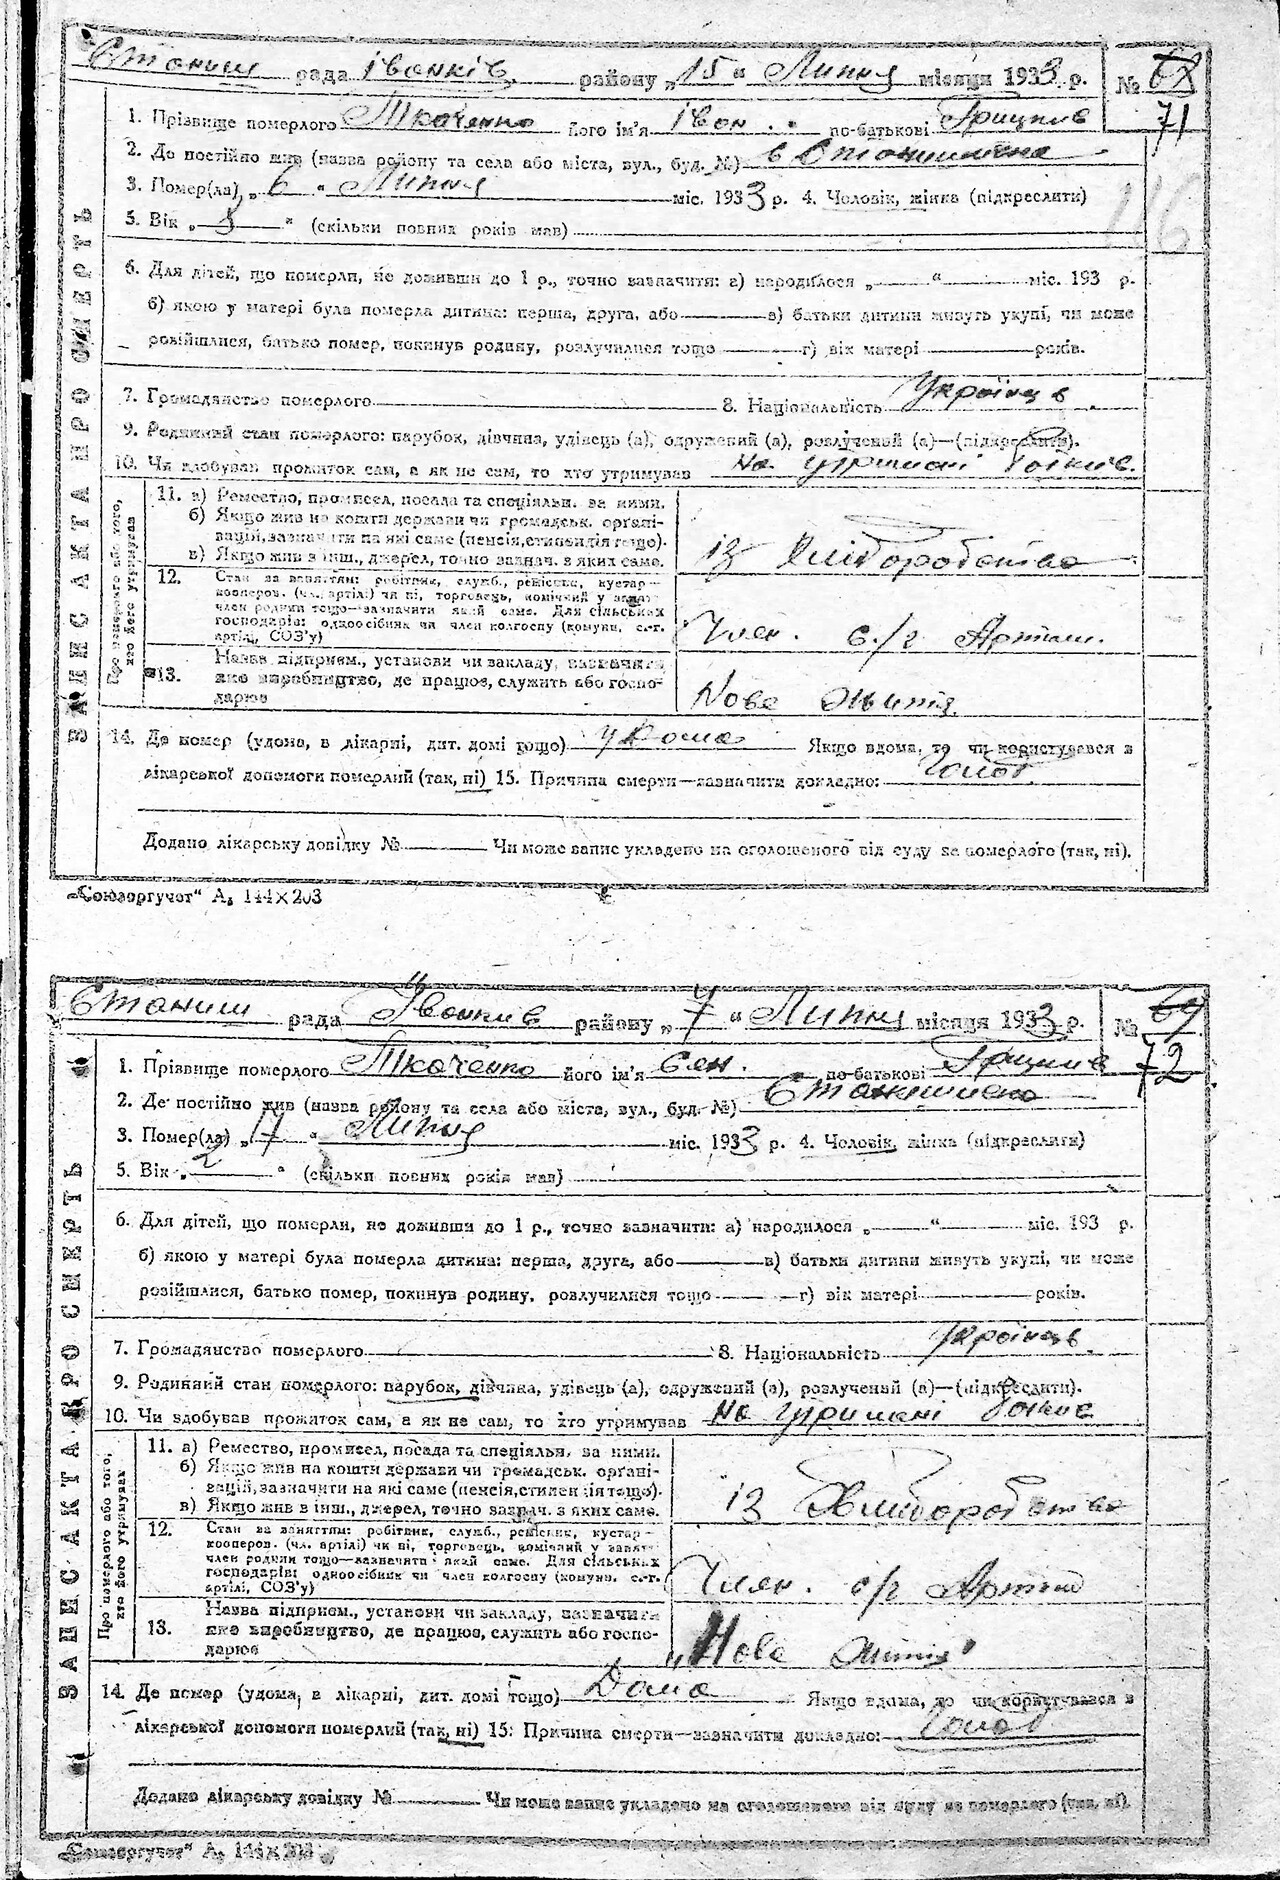 Станиш рада Іванків району „15“ Липня місяця 1933 р. № 68
71
1. Прізвище померлого Ткаченко його ім'я Іван по-батькові Грицьків
2. Де постійно жив (назва району та села або міста, вул., буд. №) в
3. Помер(ла) „6“ Липня міс. 1933 р. 4. Чоловік, жінка (підкреслити)
116
5. Вік „ “ (скільки повних років мав)
6. Для дітей, що померли, не доживши до 1 р., точно зазначити: а) народилося „ “ міс. 193 р.
б) якою у матері була померла дитина: перша, друга, або в) батьки дитини живуть укупі, чи може
розійшлися, батько помер, покинув родину, розлучилися тощо г) вік матері років.
7. Громадянство померлого 8. Національність Українець
9. Родинний стан померлого: парубок, дівчина, удівець (а), одружений (а), розлучений (а)—(підкреслити).
10. Чи здобував прожиток сам, а як не сам, то хто утримував На утримані батьків.
ЗАПИС АКТА ПРО СМЕРТЬ
Про померлого або того, хто його утримував
11. а) Ремество, промисел, посада та спеціяльн. за ними.
б) Якщо жив на кошти держави чи громадськ. органі-
зацій, зазначити на які саме (пенсія, стипендія тощо).
в) Якщо жив з інш., джерел, точно зазнач. з яких саме.
із Хліборобства
12. Стан за заняттям: робітник, служб., ремісник, кустар—
кооперов. (чл. артілі) чи ні, торговець, помічний у занят.
член родини тощо—зазначити який саме. Для сільських
господарів: одноосібник чи член колгоспу (комуни, с.-г.
артілі, СОЗ'у)
Член. с/г Артілі.
13. Назва підприєм., установи чи закладу, зазначити
яке виробництво, де працює, служить або госпо-
дарює
Nове Життя
14. Де помер (удома, в лікарні, дит. домі тощо) у Дома Якщо вдома, то чи користувався з
лікарської допомоги померлий (так, ні) 15. Причина смерти—зазначити докладно: Голод.
Додано лікарську довідку № Чи може запис укладено на оголошеного від суду за померлого (так, ні).
„Союзоргучот“ А₅ 144×203
Станиш рада Іванків району „7“ Липня місяця 1933 р. № 69
72
1. Прізвище померлого Ткаченко його ім'я по-батькові Грицьків
2. Де постійно жив (назва району та села або міста, вул., буд. №)
3. Помер(ла) „7“ Липня міс. 1933 р. 4. Чоловік, жінка (підкреслити)
5. Вік „2“ (скільки повних років мав)
6. Для дітей, що померли, не доживши до 1 р., точно зазначити: а) народилося „ “ міс. 193 р.
б) якою у матері була померла дитина: перша, друга, або в) батьки дитини живуть укупі, чи може
розійшлися, батько помер, покинув родину, розлучилися тощо г) вік матері років.
7. Громадянство померлого 8. Національність Українець
9. Родинний стан померлого: парубок, дівчина, удівець (а), одружений (а), розлучений (а)—(підкреслити).
10. Чи здобував прожиток сам, а як не сам, то хто утримував На утримані батьків
ЗАПИС АКТА ПРО СМЕРТЬ
Про померлого або того, хто його утримував
11. а) Ремество, промисел, посада та спеціяльн. за ними.
б) Якщо жив на кошти держави чи громадськ. органі-
зацій, зазначити на які саме (пенсія, стипендія тощо).
в) Якщо жив в інш., джерел, точно зазнач. з яких саме.
із Хліборобства
12. Стан за заняттям: робітник, служб., ремісник, кустар—
кооперов. (чл. артілі) чи ні, торговець, помічний у занят.
член родини тощо—зазначити який саме. Для сільських
господарів: одноосібник чи член колгоспу (комуни, с.-г.
артілі, СОЗ'у)
Член. с/г Артілі
13. Назва підприєм., установи чи закладу, зазначити
яке виробництво, де працює, служить або госпо-
дарює
„Нове Життя“
14. Де помер (удома, в лікарні, дит. домі тощо) Дома Якщо вдома, то чи користувався з
лікарської допомоги померлий (так, ні) 15: Причина смерти—зазначити докладно: Голод
Додано лікарську довідку № Чи може запис укладено на оголошеного від суду за померлого (так, ні).
„Союзоргучот“ А₅ 144×203